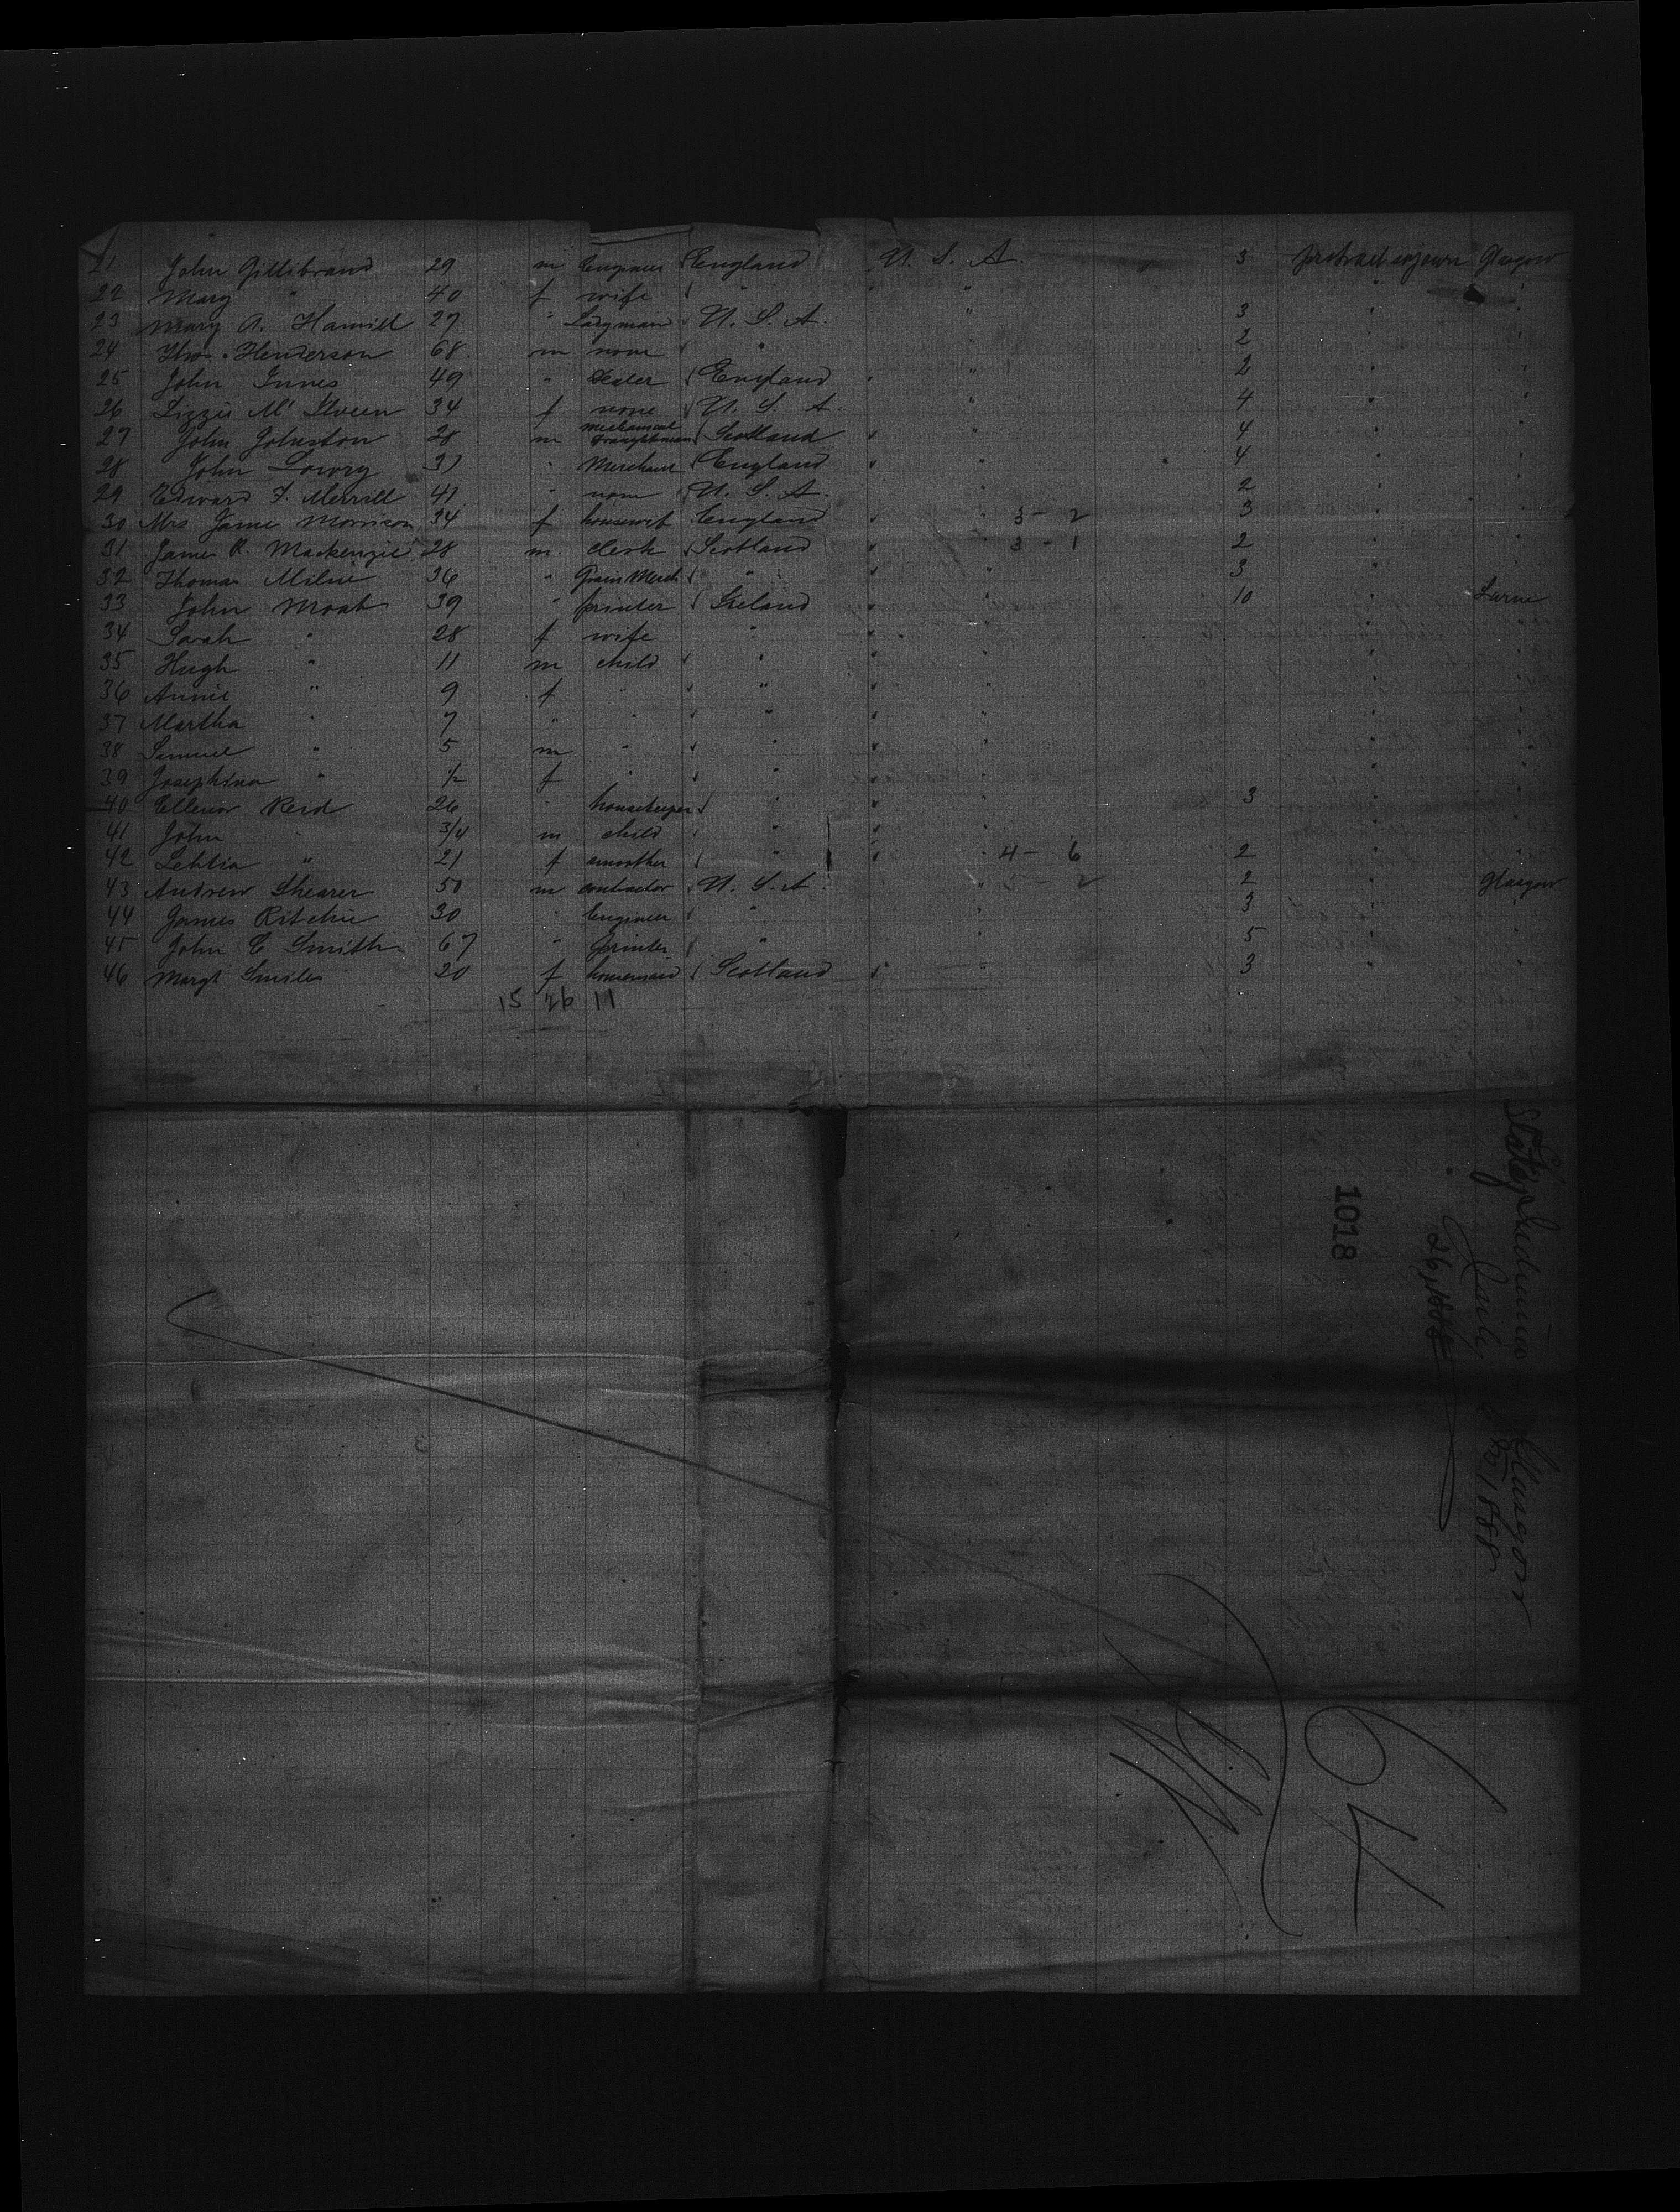 21 John Gillibrand 29 m Engineer England U. S. A. 3 protracted sojourn Glasgow
22 Mary " 40 f wife " "
23 Mary A. Hamill 27 " Ladysmaid U. S. A. " 3 "
24 Thos. Henderson 68 m none " 2 "
25 John Innes 49 " Dealer England " 2 "
26 Lizzie Mc Ilveen 34 f none U. S. A. " 4 "
27 John Johnston 28 m mechanical Draughtsman Scotland " 4 "
28 John Lowry 37 " Merchant England " 4 "
29 Edward F. Merrill 41 " none U. S. A. 2 "
30 Mrs James Morrison 34 f housewife England " 3 - 2 3 "
31 James R. Mackenzie 28 m clerk Scotland " 3 - 1 2 "
32 Thomas Milne 36 " Grain Merch " " 3 "
33 John Moat 39 " printer Ireland " 10 " Larne
34 Sarah " 28 f wife " " " "
35 Hugh " 11 m child " " " "
36 Annie " 9 f " " " " "
37 Martha " 7 " " " " " "
38 Samuel " 5 m " " " " "
39 Josephina " 1/2 f " " " " "
40 Ellenor Reid 26 " housekeeper " " 3 " "
41 John " 3/4 m child " " " "
42 Letitia " 21 f smoother " " 4 - 6 2 " "
43 Andrew Shearer 50 m contractor U. S. A. " 3 - 2 2 " Glasgow
44 James Ritchie 30 " Engineer " " 3 " "
45 John C Smith 67 " printer " " 5 " "
46 Margt Smiles 20 f housemaid Scotland " 3 " "
15 26 11
State of Indiana Glasgow
1888
1018
64